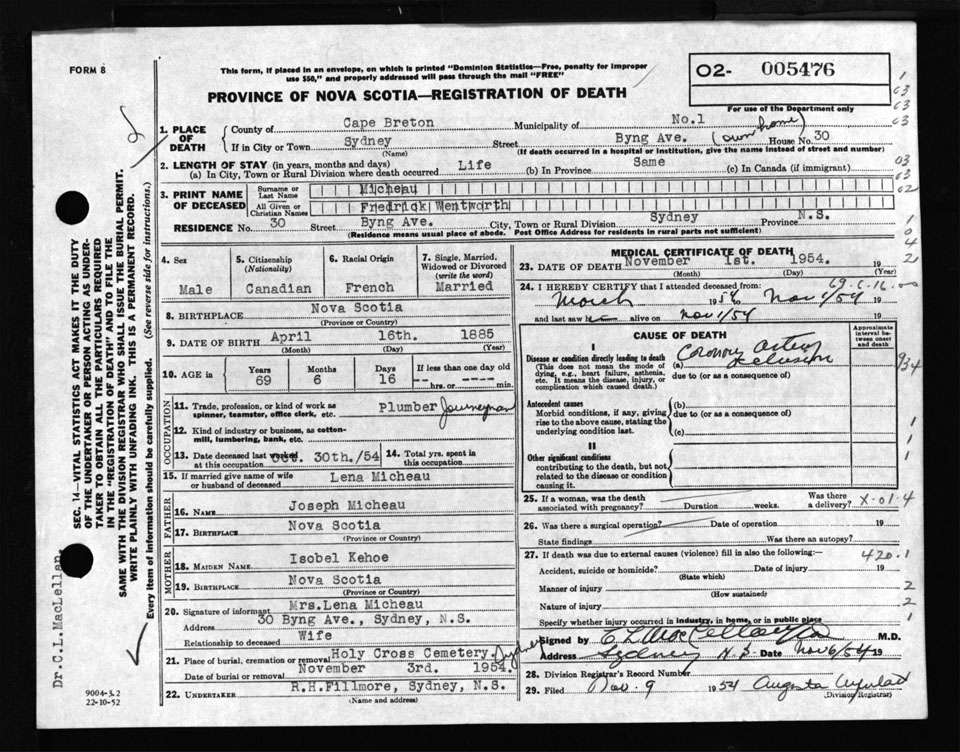 FORM 8
This form, if placed in an envelope, on which is printed "Dominion Statistics—Free, penalty for improper
use $50," and properly addressed will pass through the mail "FREE"
PROVINCE OF NOVA SCOTIA—REGISTRATION OF DEATH
O2- 005476
For use of the Department only
1. PLACE OF DEATH
County of Cape Breton Municipality of No.1
If in City or Town Sydney Street Byng Ave. (own home) House No. 30
(Name) (If death occurred in a hospital or institution, give the name instead of street and number)
2. LENGTH OF STAY (in years, months and days)
(a) In City, Town or Rural Division where death occurred Life (b) In Province Same (c) In Canada (if immigrant)
3. PRINT NAME OF DECEASED
Surname or Last Name Micheau
All Given or Christian Names Fredrick Wentworth
RESIDENCE No. 30 Street Byng Ave. City, Town or Rural Division Sydney Province N.S.
(Residence means usual place of abode. Post Office Address for residents in rural parts not sufficient)
4. Sex
Male
5. Citizenship
(Nationality)
Canadian
6. Racial Origin
French
7. Single, Married, Widowed or Divorced
(write the word)
Married
8. BIRTHPLACE Nova Scotia
(Province or Country)
9. DATE OF BIRTH April 16th. 1885
(Month) (Day) (Year)
10. AGE in
Years Months Days If less than one day old
69 6 16 hrs. or min.
OCCUPATION
11. Trade, profession, or kind of work as
spinner, teamster, office clerk, etc. Plumber Journeyman
12. Kind of industry or business, as cotton-
mill, lumbering, bank, etc.
13. Date deceased last worked
at this occupation Oct. 30th./54
14. Total yrs. spent in
this occupation
15. If married give name of wife
or husband of deceased Lena Micheau
FATHER
16. NAME Joseph Micheau
17. BIRTHPLACE Nova Scotia
(Province or Country)
MOTHER
18. MAIDEN NAME Isobel Kehoe
19. BIRTHPLACE Nova Scotia
(Province or Country)
20. Signature of informant Mrs.Lena Micheau
Address 30 Byng Ave., Sydney, N.S.
Relationship to deceased Wife
21. Place of burial, cremation or removal Holy Cross Cemetery. Sydney
Date of burial or removal November 3rd. 1954.
22. UNDERTAKER R.H.Fillmore, Sydney, N.S.
(Name and address)
MEDICAL CERTIFICATE OF DEATH
23. DATE OF DEATH November 1st. 1954. 19
(Month) (Day) (Year)
69-6-16
24. I HEREBY CERTIFY that I attended deceased from:
March 1954 to Nov 1/54 19
and last saw h alive on Nov 1/54 19
CAUSE OF DEATH
Approximate interval between onset and death
I
Disease or condition directly leading to death
(This does not mean the mode of
dying, e.g., heart failure, asthenia,
etc. It means the disease, injury, or
complication which caused death.)
(a) Coronary Artery Occlusion
due to (or as a consequence of)
Antecedent causes
Morbid conditions, if any, giving
rise to the above cause, stating the
underlying condition last.
(b)
due to (or as a consequence of)
(c)
II
Other significant conditions
contributing to the death, but not
related to the disease or condition
causing it.
25. If a woman, was the death
associated with pregnancy? Duration weeks. Was there
a delivery? X-01-4
26. Was there a surgical operation? Date of operation 19
State findings Was there an autopsy?
27. If death was due to external causes (violence) fill in also the following:— 420.1
Accident, suicide or homicide? Date of injury 19
(State which)
Manner of injury
(How sustained)
Nature of injury
Specify whether injury occurred in industry, in home, or in public place
Signed by C L MacLellan M.D.
Address Sydney N.S. Date Nov 6/54 19
28. Division Registrar's Record Number
29. Filed Nov. 9 1954 Augusta
(Division Registrar)
SEC. 14—VITAL STATISTICS ACT MAKES IT THE DUTY
OF THE UNDERTAKER OR PERSON ACTING AS UNDER-
TAKER TO OBTAIN ALL THE PARTICULARS REQUIRED
IN THE "REGISTRATION OF DEATH" AND TO FILE THE
SAME WITH THE DIVISION REGISTRAR WHO SHALL ISSUE THE BURIAL PERMIT.
WRITE PLAINLY WITH UNFADING INK. THIS IS A PERMANENT RECORD.
Every item of information should be carefully supplied. (See reverse side for instructions.)
Dr.C.L.MacLellan.
9004-3.2
22-10-52